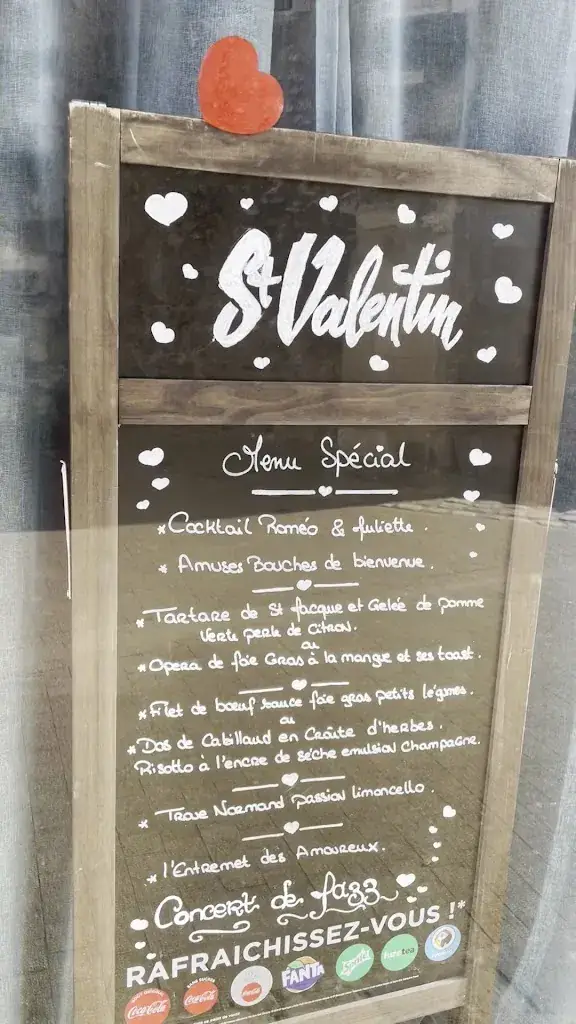 St Valentin
Menu Spécial
*Cocktail Roméo & Juliette.
* Amuses Bouches de bienvenue.
*Tartare de St Jacque et Gelée de pomme
Verte perle de Citron.
ou
*Opera de foie Gras à la mangue et ses toast.
*Filet de boeuf sauce foie gras petits légumes.
ou
*Dos de Cabillaud en Croûte d'herbes.
Risotto à l'encre de seiche emulsion Champagne.
* Trou Normand passion limoncello.
* l'Entremet des Amoureux.
Concert de Jazz
RAFRAICHISSEZ-VOUS !*
Coca-Cola Coca-Cola Coca-Cola FANTA Sprite fuzetea